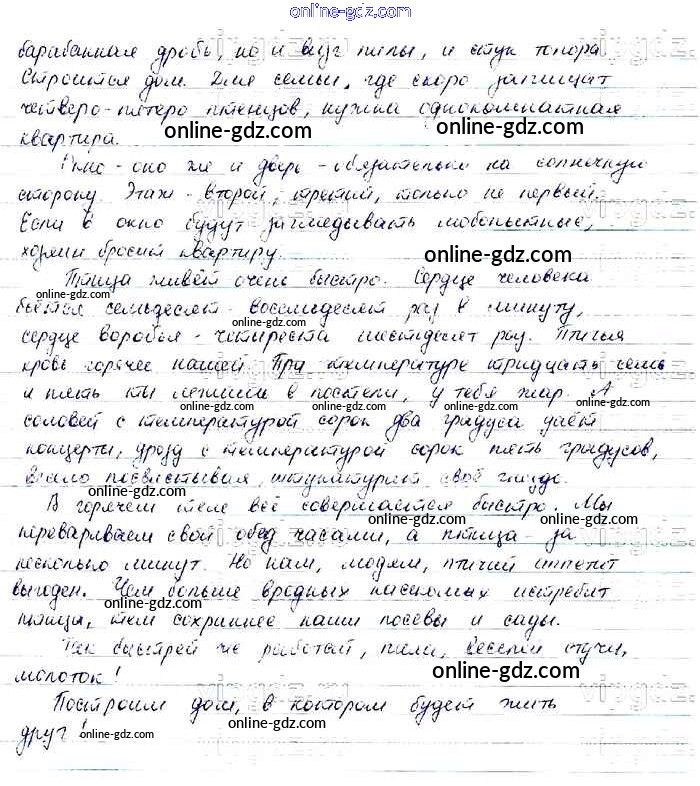 online-gdz.com
барабанная дробь, но и визг пилы, и стук топора
Строится дом. Для семьи, где скоро запищат
четверо-пятеро птенцов, нужна однокомнатная
квартира.
online-gdz.com
online-gdz.com
Окно - оно же и дверь - обязательно на солнечную
сторону. Этаж - второй, третий, только не первый.
Если в окно будут заглядывать любопытные,
хозяин бросит квартиру.
online-gdz.com
Птица живёт очень быстро. Сердце человека
online-gdz.com
бьётся семьдесят - восемьдесят раз в минуту,
сердце воробья - четыреста шестьдесят раз. Птичья
online-gdz.com
кровь горячее нашей. При температуре тридцать семь
и пять ты лежишь в постели, у тебя жар. А
online-gdz.com
online-gdz.com
соловей с температурой сорок два градуса даёт
концерты, дрозд с температурой сорок пять градусов,
весело посвистывая, штукатурит своё гнездо.
online-gdz.com
online-gdz.com
В горячем теле всё совершается быстро. Мы
online-gdz.com
перевариваем свой обед часами, а птица - за
несколько минут. Но нам, людям, птичий аппетит
выгоден. Чем больше вредных насекомых истребят
online-gdz.com
online-gdz.com
птицы, тем сохраннее наши посевы и сады.
Так быстрей же работай, пила, веселей стучи,
молоток!
online-gdz.com
Построим дом, в котором будет жить
online-gdz.com
друг!
online-gdz.com